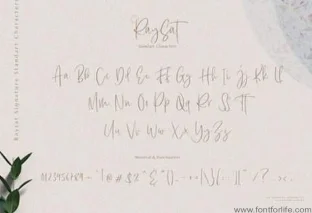 RaySat
Standart Characters
Aa Bb Cc Dd Ee Ff Gg Hh Ii Jj Kk Ll
Mm Nn Oo Pp Qq Rr Ss Tt
Uu Vv Ww Xx Yy Zz
Numeral & Punctuation
Raysat Signature Standart Characters
www.fontforlife.com